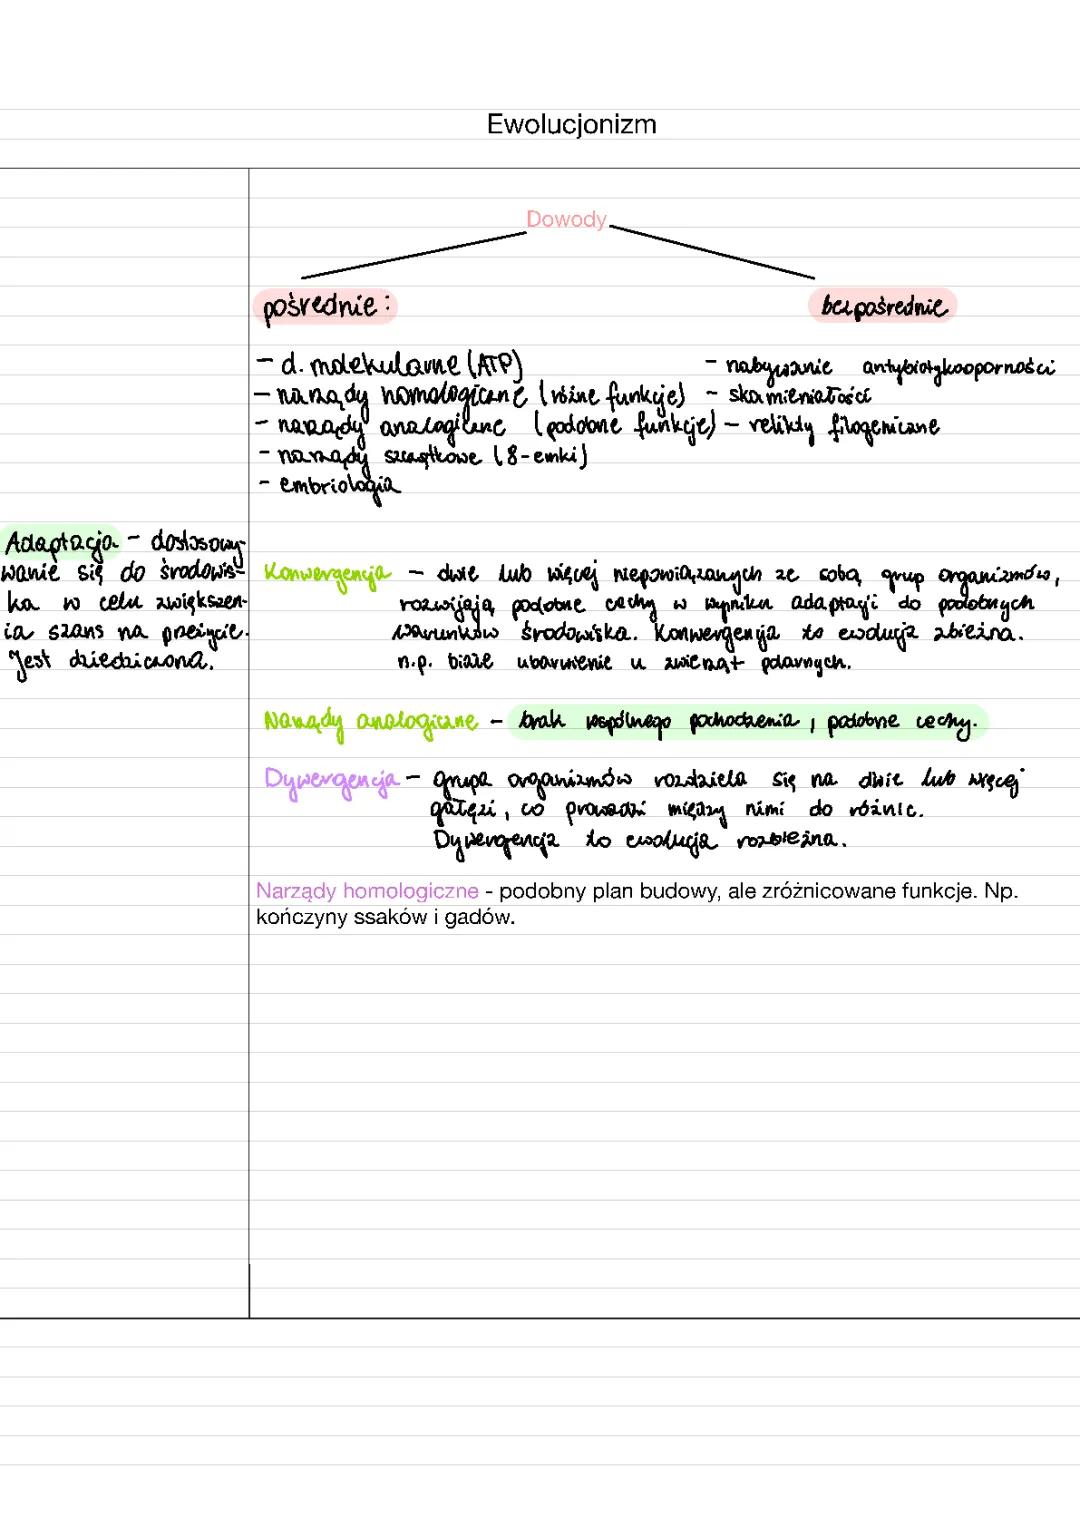 Ewolucjonizm
Dowody
pośrednie:
bezpośrednie
- d. molekularne (ATP)
- narządy homologiczne (różne funkcje)
- narządy analogiczne (podobne funkcje)
- narządy szczątkowe (8-emki)
- embriologia
- nabywanie antybiotykooporności
- skamieniałości
- relikty filogeniczne
Adaptacja - dostosowy-
wanie się do środowis-
ka w celu zwiększen-
ia szans na przeżycie.
Jest dziedziczona.
Konwergencja - dwie lub więcej niepowiązanych ze sobą grup organizmów,
rozwijają podobne cechy w wyniku adaptacji do podobnych
warunków środowiska. Konwergencja to ewolucja zbieżna.
n.p. białe ubarwienie u zwierząt polarnych.
Narządy analogiczne - brak wspólnego pochodzenia, podobne cechy.
Dywergencja - grupa organizmów rozdziela się na dwie lub więcej
gałęzi, co prowadzi między nimi do różnic.
Dywergencja to ewolucja rozbieżna.
Narządy homologiczne - podobny plan budowy, ale zróżnicowane funkcje. Np.
kończyny ssaków i gadów.